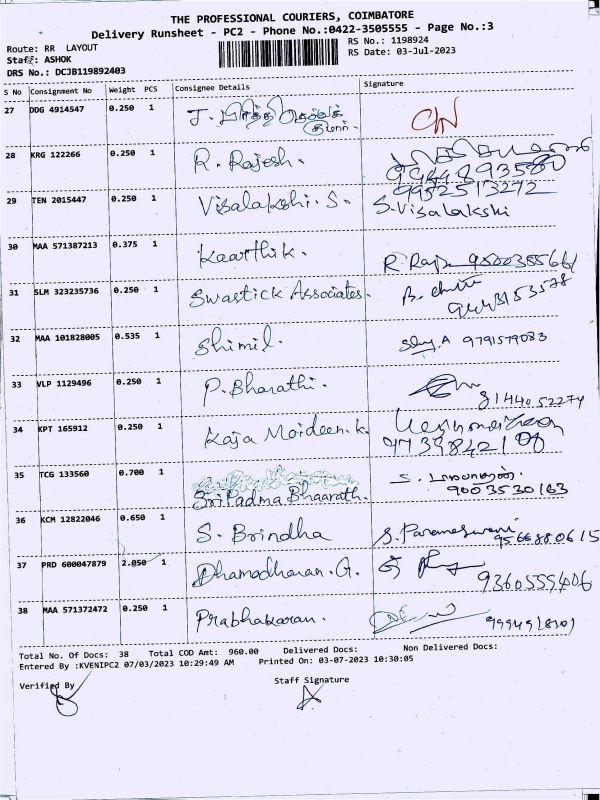 THE PROFESSIONAL COURIERS, COIMBATORE
Delivery Runsheet - PC2 - Phone No.:0422-3505555 - Page No.:3
Route: RR LAYOUT
RS No.: 1198924
Staff: ASHOK
RS Date: 03-Jul-2023
DRS No.: DCJB119892403
S No Consignment No Weight PCS Consignee Details Signature
27 DDG 4914547 0.250 1 J.
28 KRG 122266 0.250 1 R. Rajesh.
9952513272
29 TEN 2015447 0.250 1 Visalakshi. S. S.Visalakshi
30 MAA 571387213 0.375 1 Kaarthik.
31 SLM 323235736 0.250 1 Swastick Associates.
32 MAA 101828005 0.535 1 Shimil. 9791579083
33 VLP 1129496 0.250 1 P. Bharathi.
8144052274
34 KPT 165912 0.250 1 Kaja Moideen.k.
35 TCG 133560 0.700 1 Sri Padma Bhaarath.
9003530163
36 KCM 12822046 0.650 1 S. Brindha S. Parameswari
9566880615
37 PRD 600047879 2.050 1 Dhamodharan.G.
9360555406
38 MAA 571372472 0.250 1 Prabhakaran.
Total No. Of Docs: 38 Total COD Amt: 960.00 Delivered Docs: Non Delivered Docs:
Entered By :KVENIPC2 07/03/2023 10:29:49 AM Printed On: 03-07-2023 10:30:05
Verified By Staff Signature